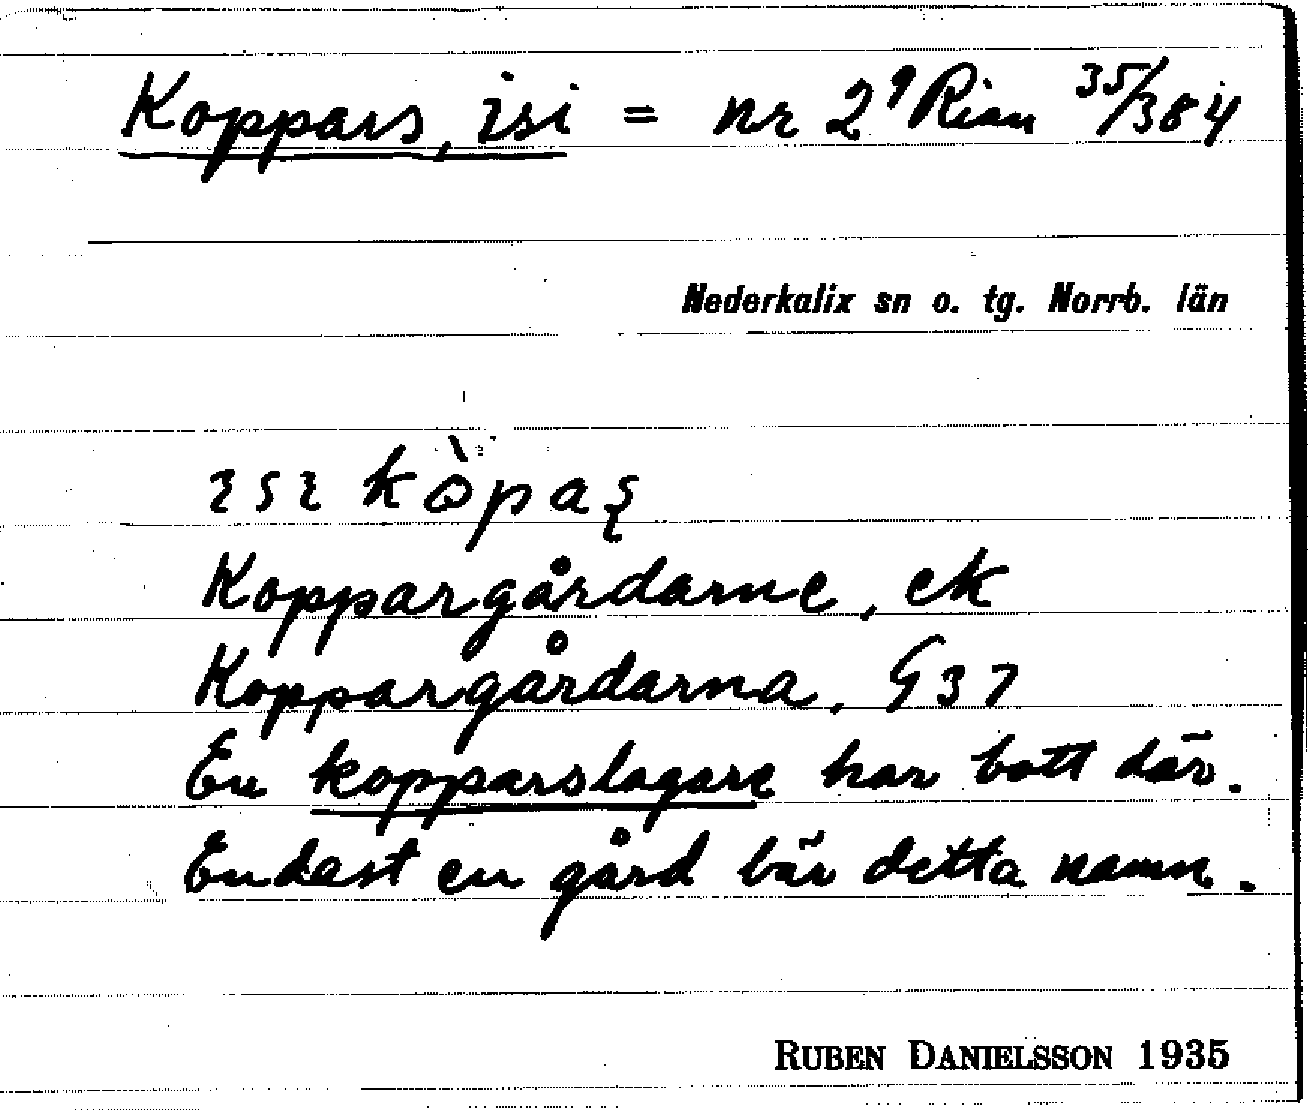 Koppars, isi = nr 2⁹ Rian 35/384
Nederkalix sn o. tg. Norrb. län
ısı kòpaş
Koppargårdarne, ek
Koppargårdarna, G 37
En kopparslagare har bott där.
Endast en gård bär detta namn.
RUBEN DANIELSSON 1935